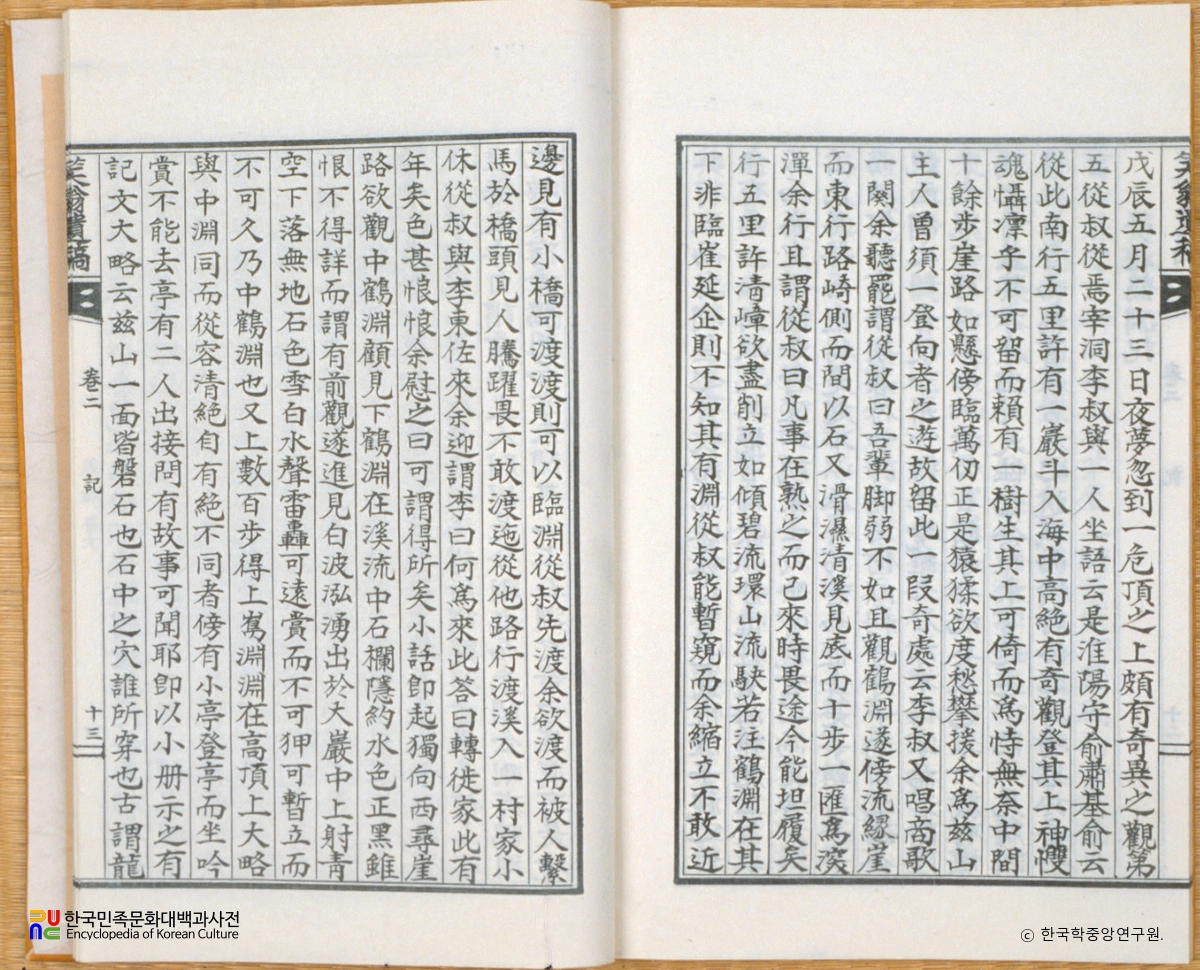 戊辰五月二十三日夜夢忽到一危頂之上頗有奇異之觀第
五從叔從焉宰洞李叔與一人坐語云是淮陽守俞肅基俞云
從此南行五里許有一巖斗入海中高絶有奇觀登其上神㥨
魂懾凛乎不可留而賴有一樹生其上可倚而爲恃無奈中間
十餘步崖路如懸傍臨萬仞正是猿猱欲度愁攀援余爲玆山
主人曾須一登向者之遊故留此一段奇處云李叔又唱商歌
一闋余聽罷謂從叔曰吾輩脚弱不如且觀鶴淵遂傍流緣崖
而東行路崎側而間以石又滑濕清溪見底而十步一匯爲深
潭余行且謂從叔曰凡事在熟之而已來時畏途今能坦履矣
行五里許清嶂欲盡削立如傾碧流環山流駃若注鶴淵在其
下非臨崔延企則不知其有淵從叔能暫窺而余縮立不敢近
邊見有小橋可渡渡則可以臨淵從叔先渡余欲渡而被人繫
馬於橋頭見人騰躍畏不敢渡迤從他路行渡溪入一村家小
休從叔與李東佐來余迎謂李曰何爲來此答曰轉徙家此有
年矣色甚悢悢余慰之曰可謂得所矣小話卽起獨向西尋崖
路欲觀中鶴淵顧見下鶴淵在溪流中石欄隱約水色正黑雖
恨不得詳而謂有前觀遂進見白波泓湧出於大巖中上射靑
空下落無地石色雪白水聲雷轟可遠賞而不可狎可暫立而
不可久乃中鶴淵也又上數百步得上鶱淵淵在高頂上大略
與中淵同而從容清絶自有絶不同者傍有小亭登亭而坐吟
賞不能去亭有二人出接問有故事可聞耶卽以小册示之有
記文大略云玆山一面皆磐石也石中之穴誰所穿也古謂龍
笑翁遺稿 卷二 記 十三
한국민족문화대백과사전
Encyclopedia of Korean Culture
ⓒ 한국학중앙연구원.